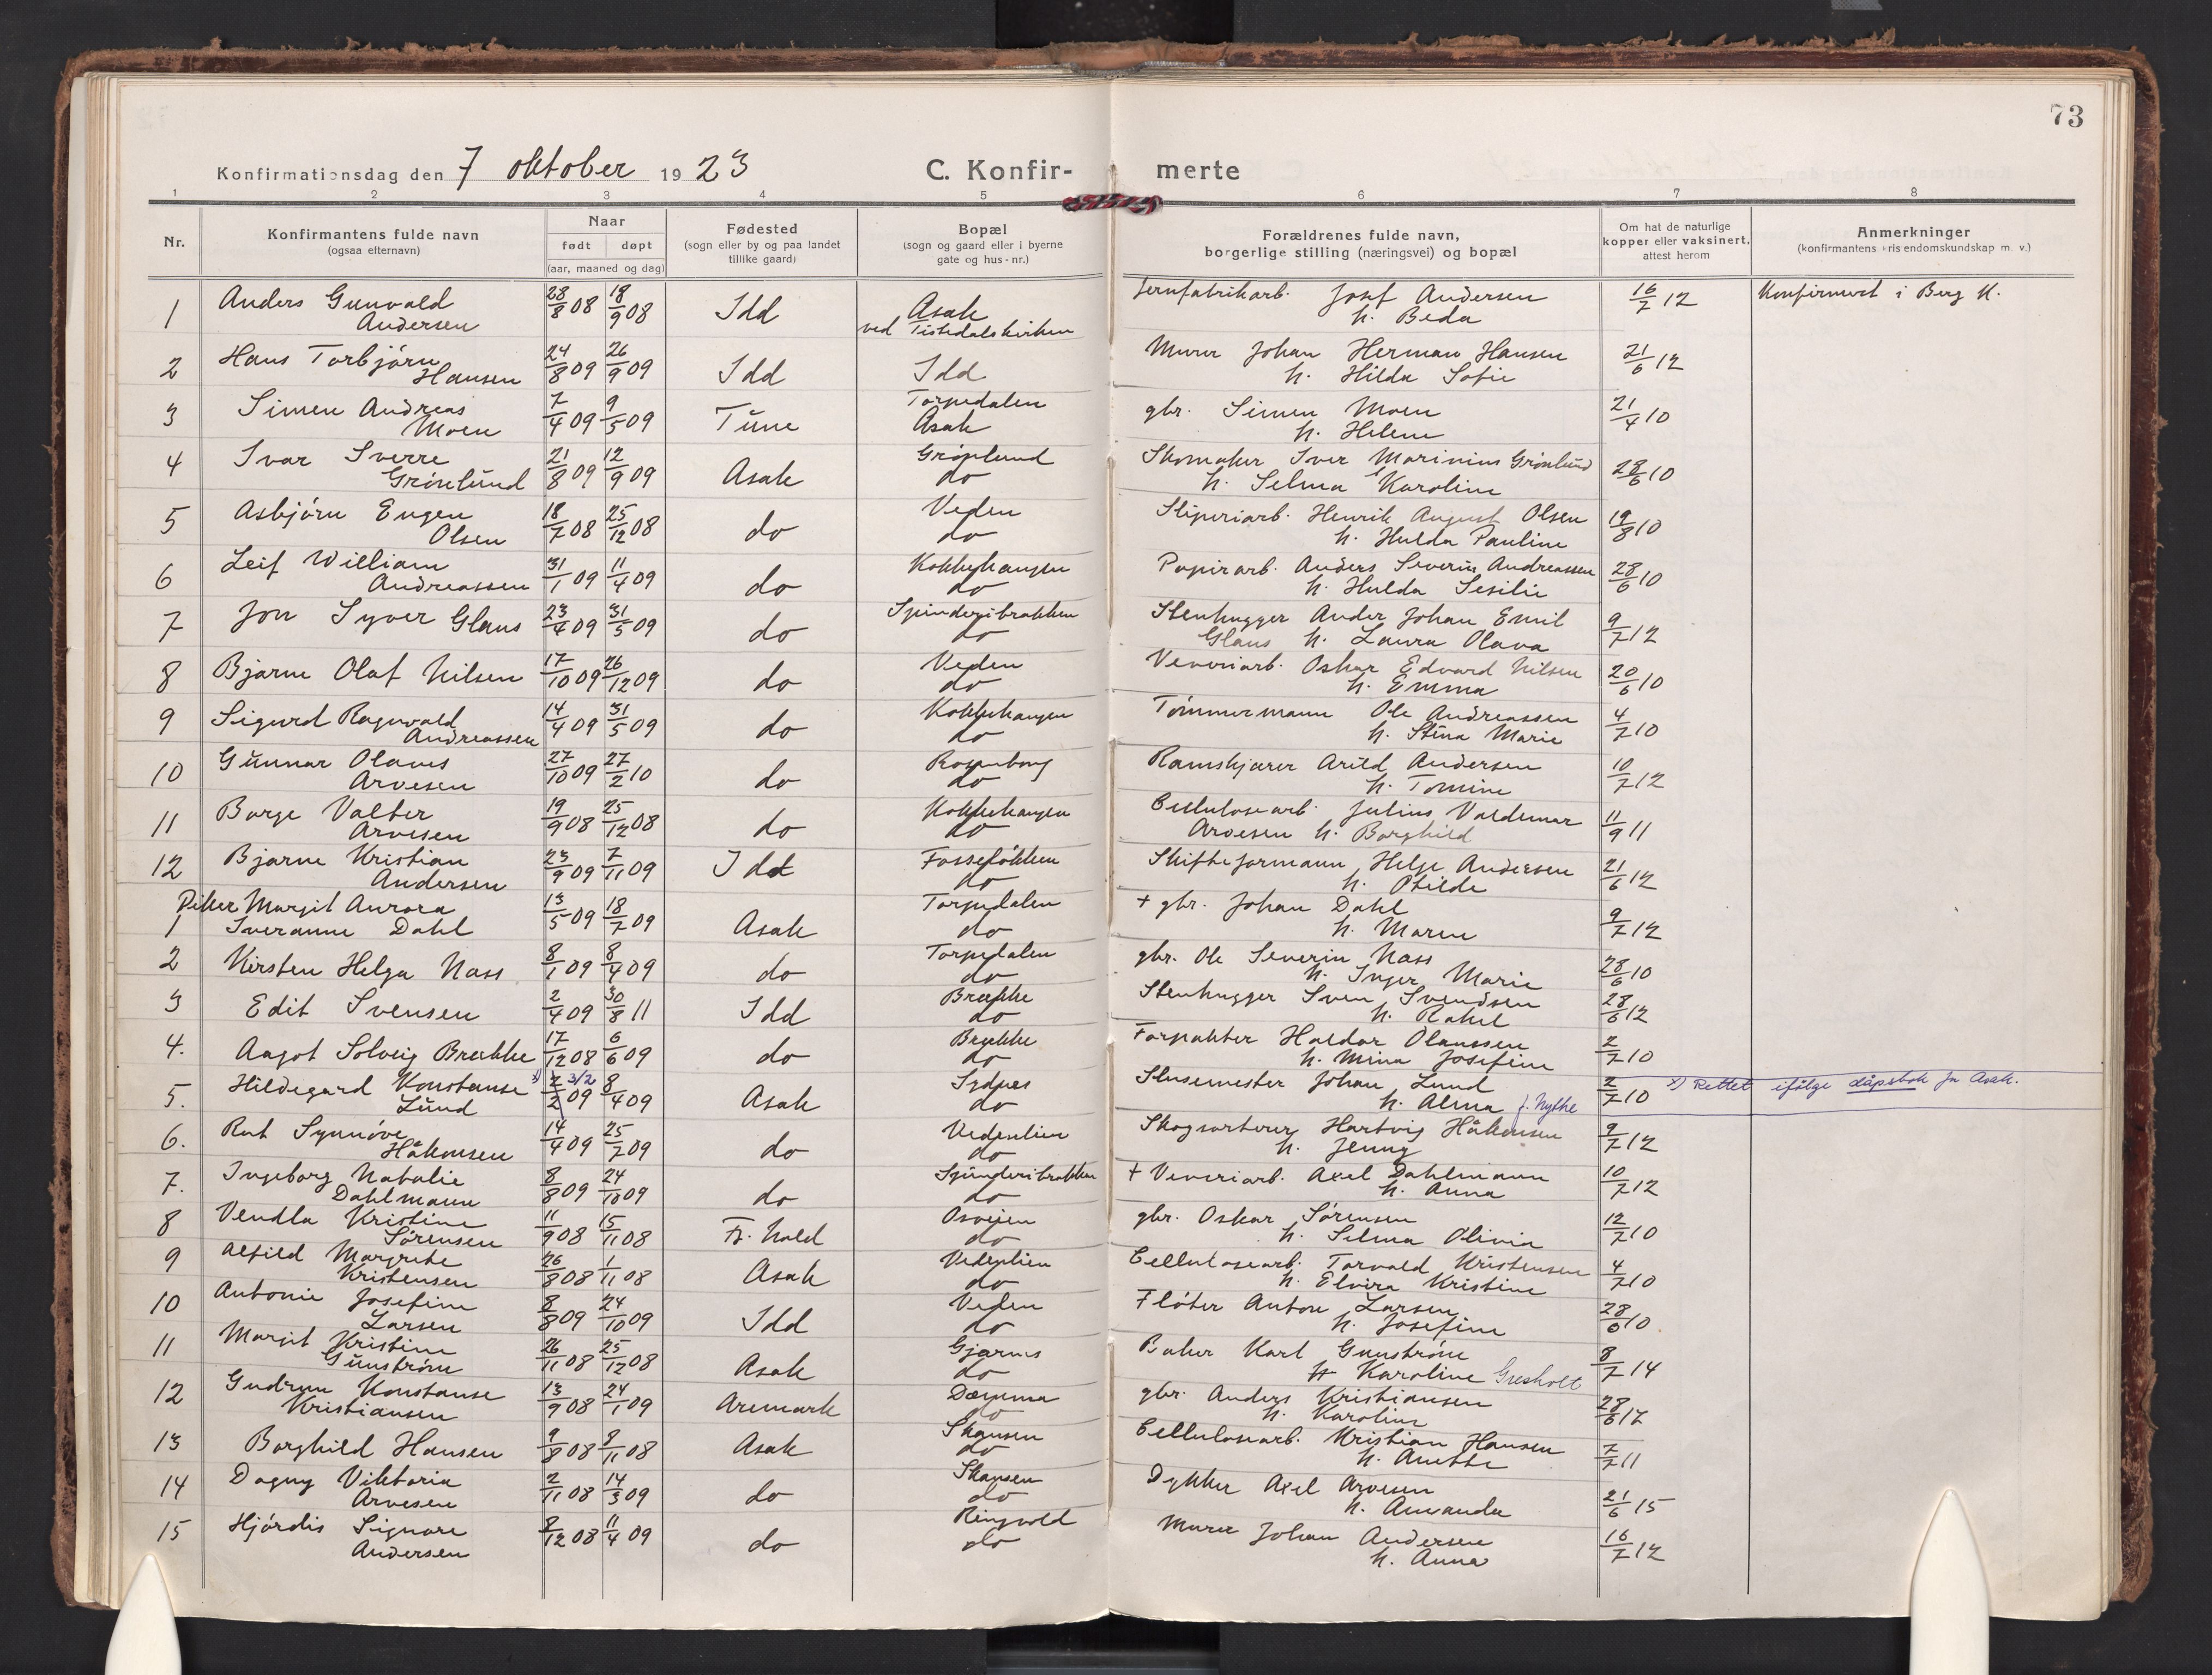 73
Konfirmationsdag den 7 oktober 1923
C. Konfir- merte
1 2 3 4 5 6 7 8
Nr.
Konfirmantens fulde navn
(ogsaa etternavn)
Naar
født døpt
(aar, maaned og dag)
Fødested
(sogn eller by og paa landet
tillike gaard)
Bopæl
(sogn og gaard eller i byerne
gate og hus-nr.)
Forældrenes fulde navn,
borgerlige stilling (næringsvei) og bopæl
Om hat de naturlige
kopper eller vaksinert,
attest herom
Anmerkninger
(konfirmantens kristendomskundskap m. v.)
1 Anders Gunvald 28/8 08 18/9 08 Idd Asak Jernfabrikarb. Josef Andersen 16/7 12 Konfirmert i Berg K.
Andersen ved Tistedalskirken h. Beda
2 Hans Torbjörn 24/8 09 26/9 09 Idd Idd Murer Johan Herman Hansen 21/6 12
Hansen h. Hilda Sofie
3 Simen Andreas 7/4 09 9/5 09 Tune Torpedalen gbr. Simen Moen 21/4 10
Moen Asak h. Helene
4 Ivar Sverre 21/8 09 12/9 09 Asak Grønlund Skomaker Iver Marinius Grönlund 28/6 10
Grönlund do h. Selma Karoline
5 Asbjörn Eugen 18/7 08 25/12 08 do Veden Sliperiarb. Henrik August Olsen 19/8 10
Olsen do h. Hulda Pauline
6 Leif William 31/1 09 11/4 09 do Kokkehaugen Papirarb. Anders Severin Andreassen 28/6 10
Andreassen do h. Hulda Sesilie
7 Jon Syver Glans 23/4 09 31/5 09 do Spinderibrakken Stenhugger Ander Johan Emil 9/7 12
do Glans h. Laura Olava
8 Bjarne Olaf Nilsen 17/10 09 26/12 09 do Veden Veveriarb. Oskar Edvard Nilsen 20/6 10
do h. Emma
9 Sigurd Ragnvald 14/4 09 31/5 09 do Kokkehaugen Tömmermann Ole Andreassen 4/7 10
Andreassen do h. Stina Marie
10 Gunnar Olaves 27/10 09 27/2 10 do Rosenborg Ramskjærer Arild Andersen 10/7 12
Arvesen do h. Tomine
11 Borge Valter 19/9 08 25/12 08 do Kokkehaugen Cellulosearb. Julius Valdemar 11/9 11
Arvesen do Arvesen h. Borghild
12 Bjarne Kristian 23/9 09 7/11 09 Idd Fosseløkken Skifteformann Helge Andersen 21/6 12
Andersen do h. Otilde
Piker
1 Margit Aurora 13/5 09 18/7 09 Asak Torpedalen + gbr. Johan Dahl 9/7 12
Iveranne Dahl do h. Maren
2 Kirsten Helga Nass 8/1 09 8/4 09 do Torpedalen gbr. Ole Severin Nass 28/6 10
do h. Inger Marie
3 Edit Svensen 2/4 09 30/8 11 Idd Brække Stenhugger Sven Svendsen 28/6 12
do h. Rakel
4. Aagot Solveig Brække 17/12 08 6/6 09 do Brække Forpakter Haldor Olaussen 2/7 10
do h. Mina Josefine
5. Hildegard Konstanse x) 2/2 3/2 09 8/4 09 Asak Sydnes Slusemester Johan Lund 2/7 10 x) Rettet ifølge dåpsbok for Asak.
Lund do h. Alma f. Nythe
6. Rut Synnöve 14/4 09 25/7 09 do Vedenlien Skogsorterer Hartvig Håkonsen 9/7 12
Håkonsen do h. Jenny
7. Ingeborg Natalie 8/8 09 24/10 09 do Spinderibrakken + Veveriarb. Axel Dahlmann 10/7 12
Dahlmann do h. Anna
8 Vendla Kristine 11/9 08 15/11 08 Fr. hald Osveien gbr. Oskar Sörensen 12/7 10
Sörensen do h. Selma Olivia
9 Alfild Margrete 26/8 08 1/11 08 Asak Vedenlien Cellulosearb. Torvald Kristensen 4/7 10
Kristensen do h. Elvira Kristine
10 Antonie Josefine 8/8 09 24/10 09 Idd Veden Flöter Anton Larsen 28/6 10
Larsen do h. Josefine
11 Margit Kristine 26/11 08 25/12 08 Asak Gjærnes Baker Karl Gunström 8/7 14
Gunström do h. Karoline Gresholt
12 Gudrun Konstanse 13/9 08 24/1 09 Aremark gbr. Anders Kristiansen 28/6 12
Kristiansen do h. Karoline
13 Borghild Hansen 9/8 08 8/11 08 Asak Skansen Cellulosearb. Kristian Hansen 7/7 11
do h. Anette
14 Dagny Viktoria 2/11 08 14/3 09 do Skansen Dykker Axel Arvesen 21/6 15
Arvesen do h. Amanda
15 Hjördis Signore 8/12 08 11/4 09 do Ringvold Murer Johan Andersen 16/7 12
Andersen do h. Anna